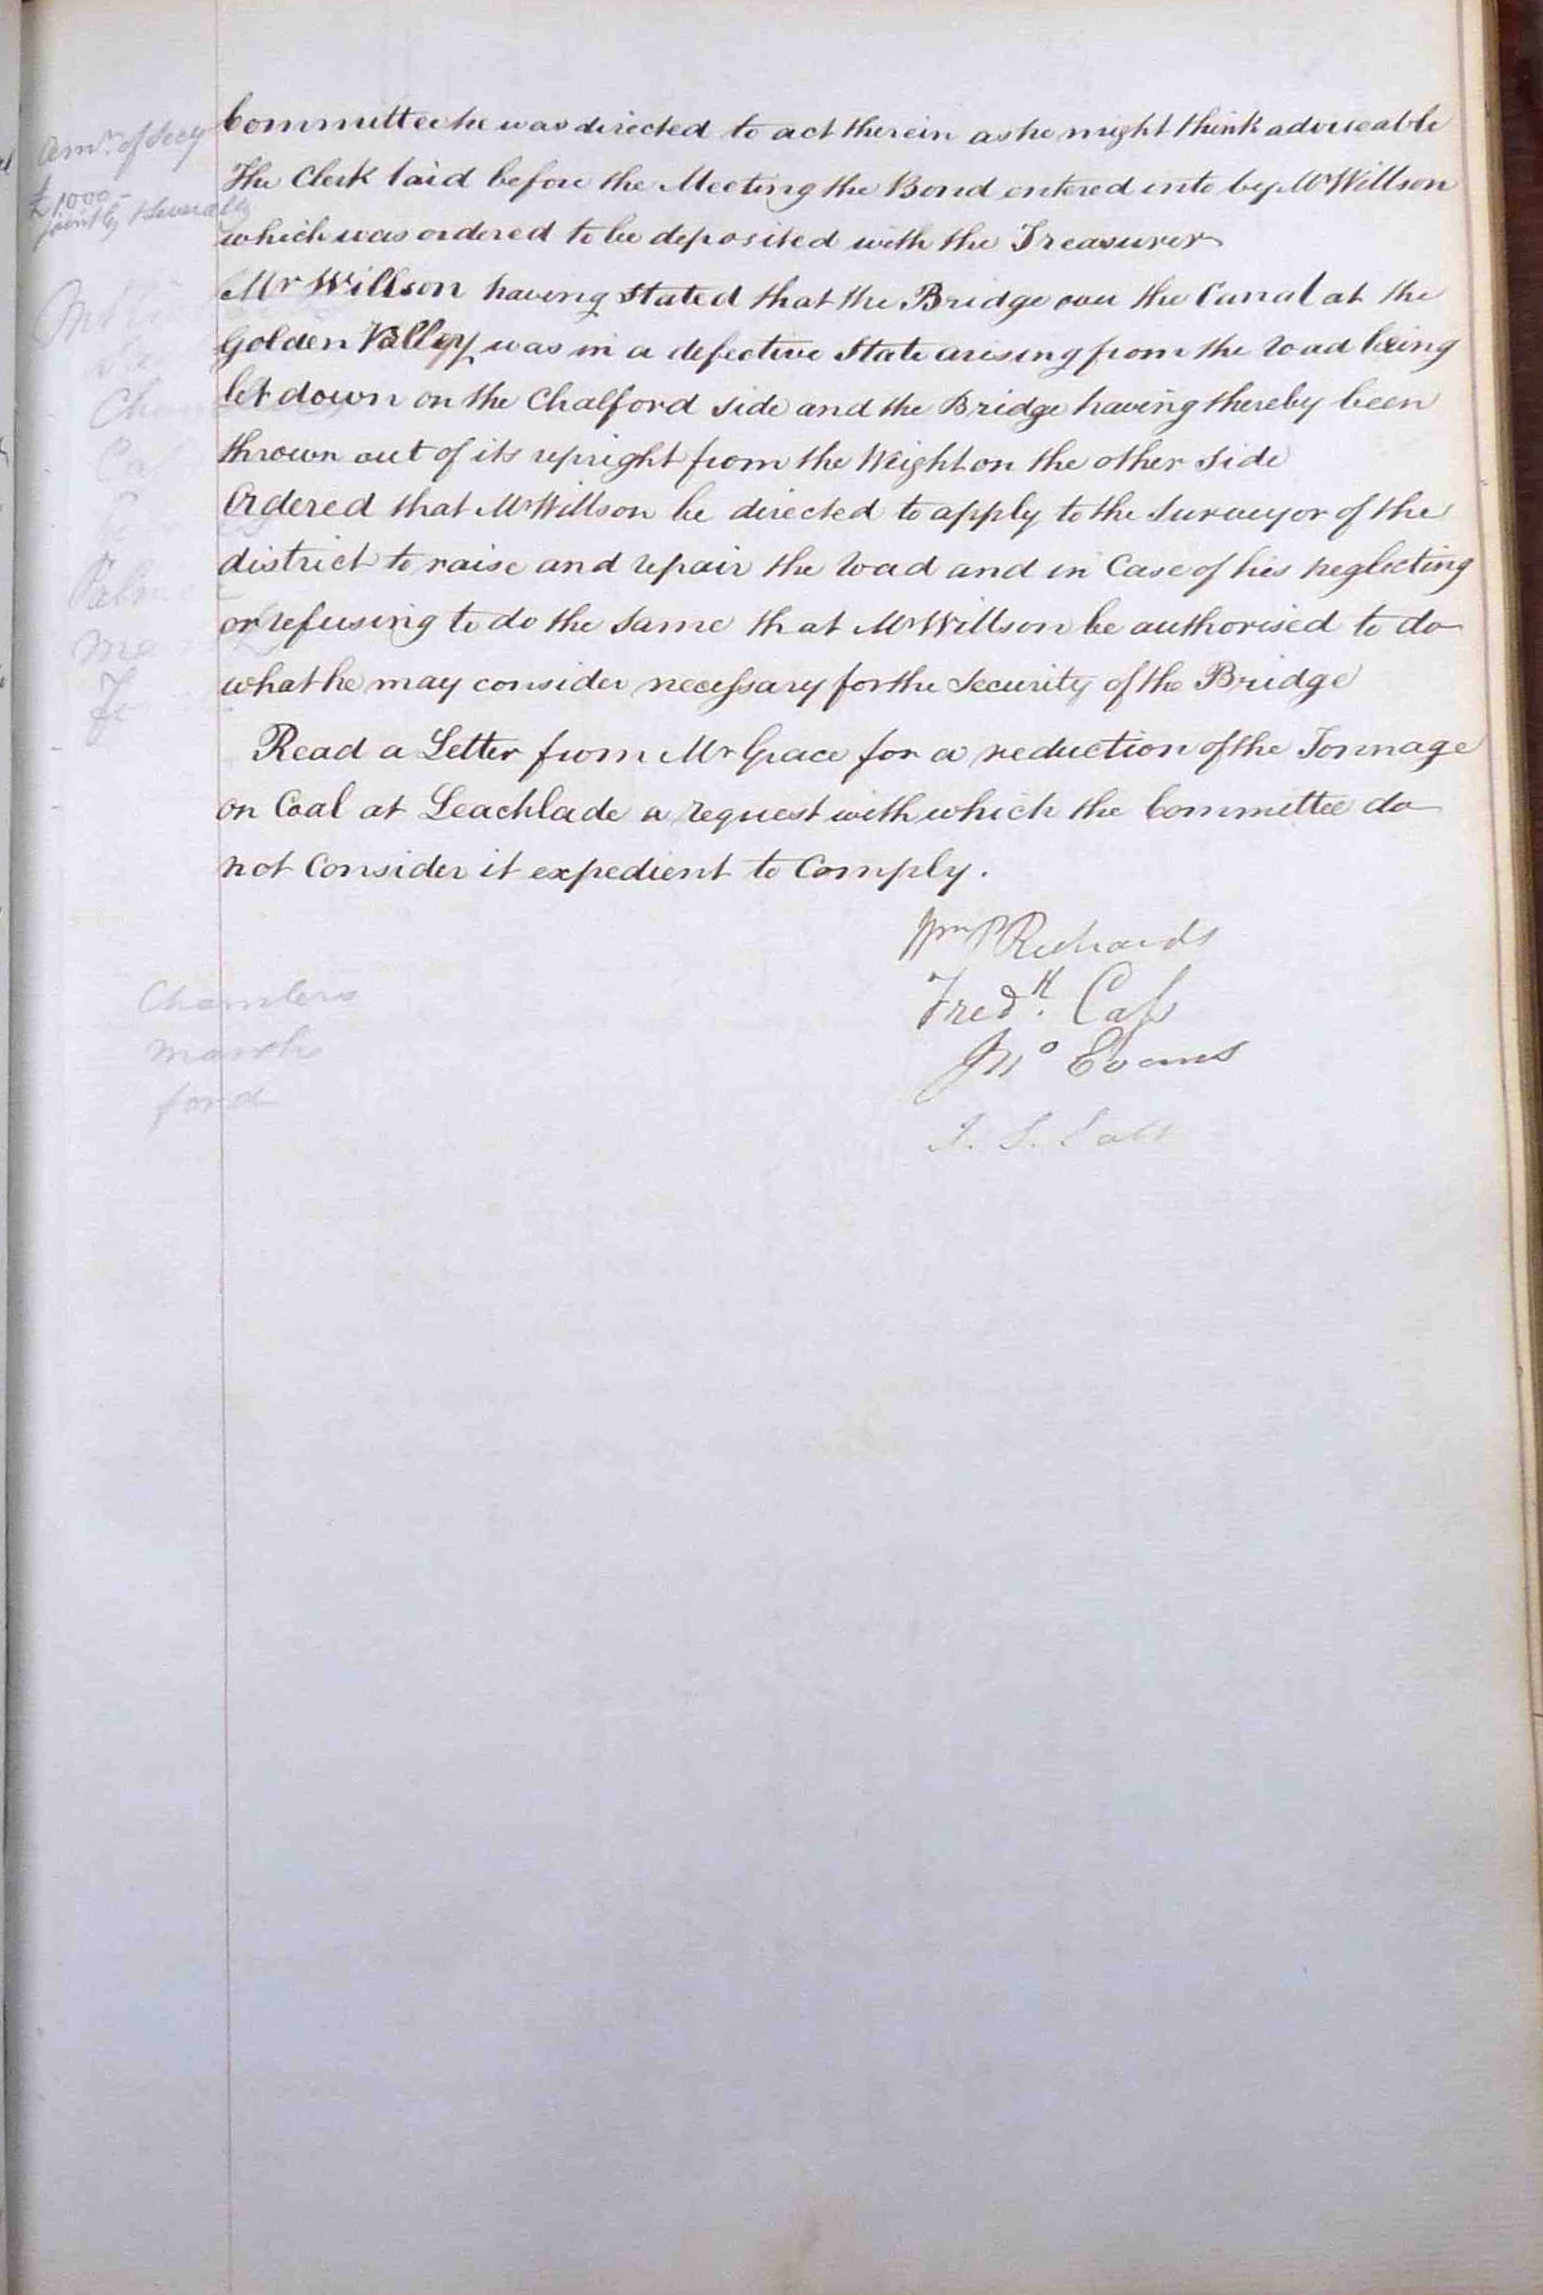 Amt. of Secy
£1000-
jointly & Severally
Committee he was directed to act therein as he might think adviseable
The Clerk laid before the Meeting the Bond entered into by Mr Willson
which was ordered to be deposited with the Treasurer
Mr Willson having stated that the Bridge over the Canal at the
Golden Valley was in a defective State arising from the road being
let down on the Chalford side and the Bridge having thereby been
thrown out of its upright from the Weight on the other side
Ordered that Mr Willson be directed to apply to the Surveyor of the
district to raise and repair the road and in Case of his neglecting
or refusing to do the Same that Mr Willson be authorised to do
what he may consider necessary for the Security of the Bridge
Read a Letter from Mr Grace for a reduction of the Tonnage
on Coal at Leachlade a request with which the Committee do
not Consider it expedient to Comply.
Wm P Richards
Fredk. Cass
Jno Evans
Chambers
Marsh
ford